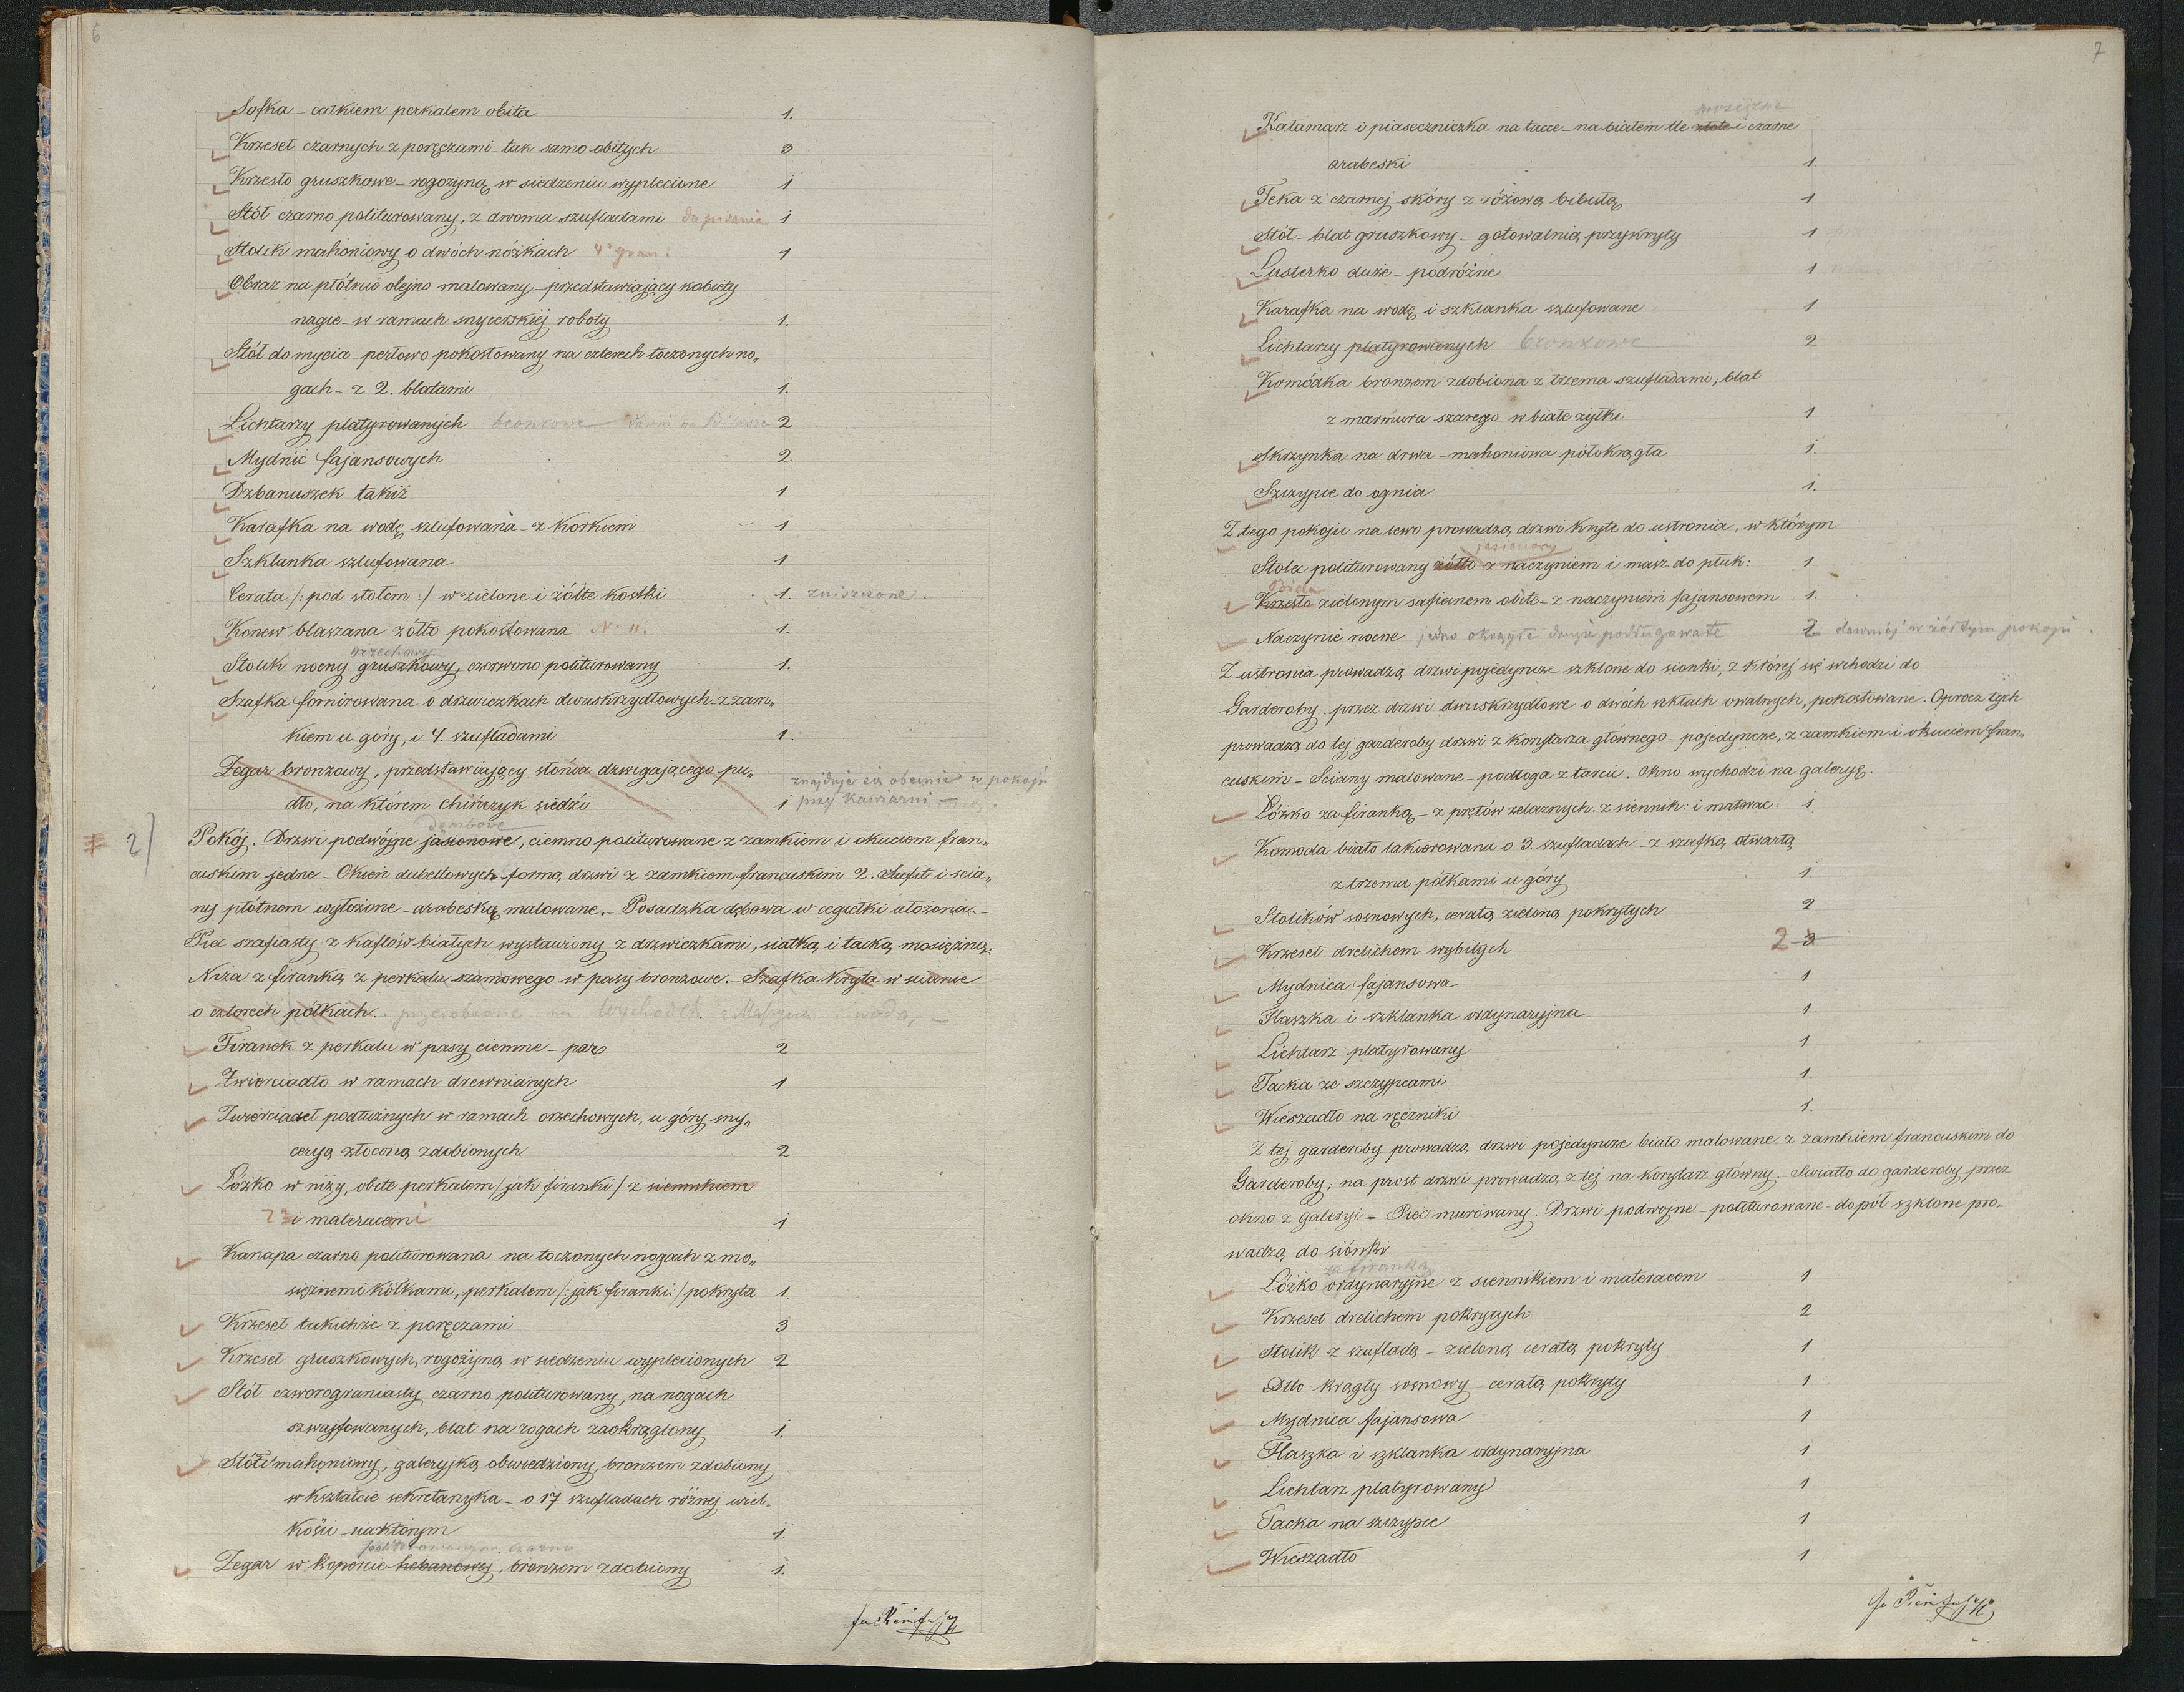 6
Sofka – całkiem perkalem obita 1.
Krzeseł czarnych z poręczami – tak samo obitych 3
Krzesło gruszkowe – rogożyną w siedzeniu wyplecione 1
Stół czarno politurowany, z dwoma szufladami do pisania 1
Stolik mahoniowy o dwóch nóżkach 1
Obraz na płótnie olejno malowany – przedstawiający kobiety
nagie – w ramach snycerskiéj roboty 1.
Stół do mycia – perłowo pokostowany na czterech toczonych no„
gach – z 2. blatami 1.
Lichtarzy platyrowanych bronzowe 2
Mydnic fajansowych 2
Dzbanuszek takiż 1
Karafka na wodę szlufowana – z korkiem 1
Szklanka szlufowana 1
Cerata /: pod stołem :/ w zielone i żółte kostki 1. zniszczone.
Konew blaszana żółto pokostowana No 11. 1.
orzechowy
Stolik nocny gruszkowy, czerwono politurowany 1.
Szafka fornirowana o drzwiczkach dwuskrzydłowych – z zam„
kiem u góry, i 4. szufladami 1.
Zegar bronzowy, przedstawiający słonia dzwigającego pu„
dło, na którem Chińczyk siedzi 1
znajduje się obecnie w pokoju
przy Kawiarni
dembove
2) Pokój. Drzwi podwójne jasionowe, ciemno politurowane z zamkiem i okuciem fran„
cuskim jedne – Okien dubeltowych – formą drzwi z zamkiem francuskim 2. Sufit i scia„
ny płótnem wyłożone – arabeską malowane. – Posadzka dębowa w cegiełki ułożona. –
Piec szafiasty z kaflów białych wystawiony z drzwiczkami, siatką i tacką mosiężną.
Niża z firanką z perkalu szamowego w pasy bronzowe. – Szafka kryta w scianie
o czterech półkach. przerobione na Wychodek z Maszyną i wodą, –
Firanek z perkalu w pasy ciemne – par 2
Zwierciadło w ramach drewnianych 1
Zwierciadeł podłużnych w ramach orzechowych, u góry sny„
ceryą złoconą zdobionych 2
Łóżko w niży, obite perkalem /: jak firanki :/ z siennikiem
i materacem 1
Kanapa czarno politurowana na toczonych nogach z mo„
siężnemi kółkami, perkalem /: jak firanki :/ pokryta 1.
Krzeseł takichże z poręczami 3
Krzeseł gruszkowych, rogożyną w siedzeniu wyplecionych 2
Stół czworograniasty czarno politurowany, na nogach
szwajfowanych, blat na rogach zaokrąglony 1.
Stół mahoniowy, galeryjką obwiedziony, bronzem zdobiony
w kształcie sekretarzyka – o 17 szufladach różnej wiel„
kości – na którym 1.
politurowanym czarno
Zegar w kopercie hebanowej, bronzem zdobiony 1.
7
Kałamarz i piaseczniczka na tacce – na białem tle złote i czarne
arabeski 1
Teka z czarnej skóry z różową bibułą 1
Stół – blat gruszkowy – gotowalnią przykryty 1
Lusterko duże – podróżne 1
Karafka na wodę i szklanka szlufowane 1
Lichtarzy platyrowanych bronzowe 2
Komódka bronzem zdobiona z trzema szufladami, blat
z marmuru szarego w białe żyłki 1
Skrzynka na drwa – mahoniowa półokrągła 1.
Szczypce do ognia 1.
Z tego pokoju na lewo prowadzą drzwi kryte do ustronia, w którym
jasionowy
Stolec politurowany żółto z naczyniem i masz. do płuk: 1
Bidet
Krzesło zielonym safianem obite – z naczyniem fajansowem 1.
Naczynie nocne jedno okrągłe drugie podługowate 2 dawniéj w żółtym pokoju.
Z ustronia prowadzą drzwi pojedyncze szklone do sionki, z której się wchodzi do
Garderoby, przez drzwi dwuskrzydłowe o dwóch szkłach owalnych, pokostowane. Oprócz tych
prowadzą do tej garderoby drzwi z Korytarza głównego – pojedyncze, z zamkiem i okuciem fran„
cuskim – Sciany malowane – podłoga z tarcic. Okno wychodzi na galeryę.
Łóżko za firanką – z prętów żelaznych – z siennik: i materac: 1
Komoda biało lakierowana o 3. szufladach – z szafką otwartą
z trzema półkami u góry 1
Stolików sosnowych, ceratą zieloną pokrytych 2
Krzeseł drelichem wybitych 2 3
Mydnica fajansowa 1
Flaszka i szklanka ordynaryjna 1
Lichtarz platyrowany 1
Tacka ze szczypcami 1.
Wieszadło na ręczniki 1.
Z tej garderoby prowadzą drzwi pojedyncze biało malowane z zamkiem francuskim do
Garderoby; na prost drzwi prowadzą z tej na korytarz główny. – Swiatło do garderoby przez
okno z galeryi – Piec murowany. Drzwi podwojne – politurowane – do pół szklone pro„
wadzą do sionki
za firanką
Łóżko ordynaryjne z siennikiem i materacem 1
Krzeseł drelichem pokrytych 2
Stolik z szufladą – zieloną ceratą pokryty 1
Dtto krągły sosnowy – ceratą pokryty 1
Mydnica fajansowa 1
Flaszka i szklanka ordynaryjna 1
Lichtarz platyrowany 1
Tacka na szczypce 1
Wieszadło 1